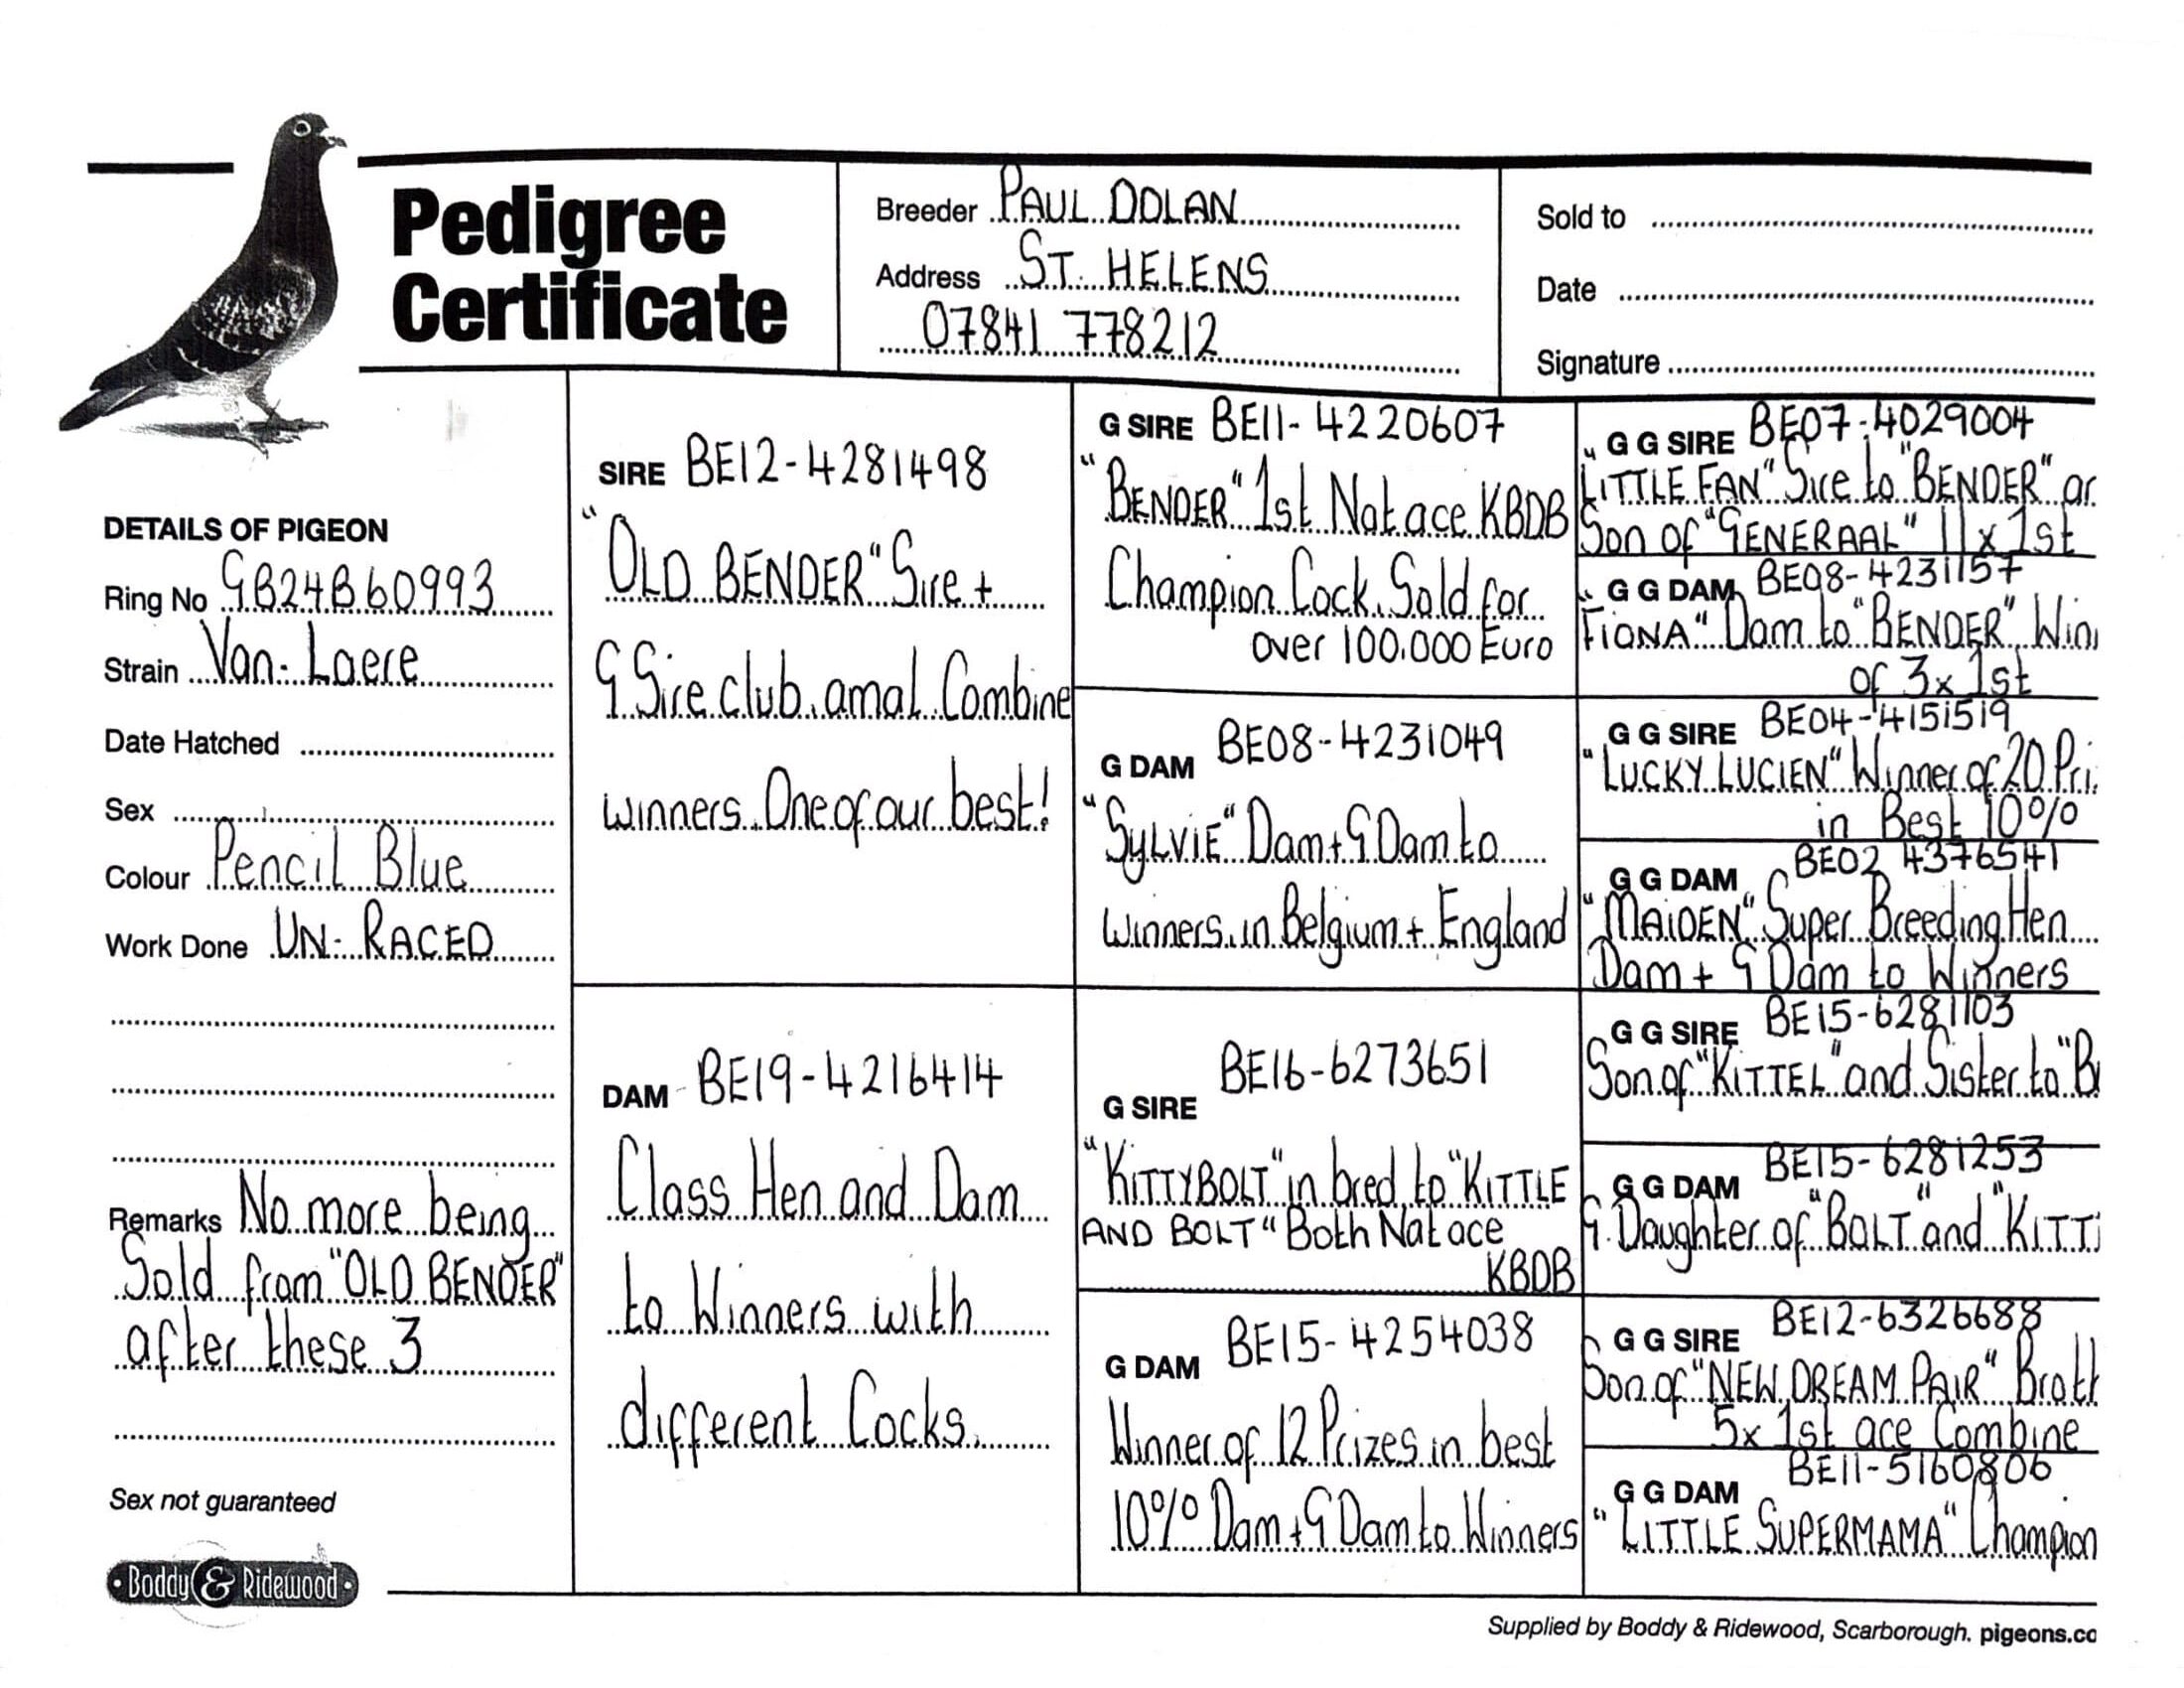 Pedigree
Certificate
Breeder PAUL DOLAN
Address ST. HELENS
07841 778212
Sold to
Date
Signature
DETAILS OF PIGEON
Ring No GB24B60993
Strain Van-Laere
Date Hatched
Sex
Colour Pencil Blue
Work Done UN-RACED
Remarks No more being
Sold from "OLD BENDER"
after these 3
Sex not guaranteed
Boddy & Ridewood
SIRE BE12-4281498
"OLD BENDER" Sire +
G Sire club, amal Combine
winners. One of our best!
DAM BE19-4216414
Class Hen and Dam
to Winners with
different Cocks.
G SIRE BE11-4220607
"BENDER" 1st Nat ace KBDB
Champion Cock. Sold for
over 100.000 Euro
G DAM BE08-4231049
"SYLVIE" Dam + G Dam to
winners in Belgium + England
G SIRE BE16-6273651
"KITTYBOLT" in bred to "KITTLE
AND BOLT" Both Nat ace
KBDB
G DAM BE15-4254038
Winner of 12 Prizes in best
10% Dam + G Dam to Winners
G G SIRE BE07-4029004
"LITTLE FAN" Sire to "BENDER" an
Son of "GENERAAL" 11 x 1st
G G DAM BE08-4231157
"FIONA" Dam to "BENDER" Win
of 3x 1st
G G SIRE BE04-4151519
"LUCKY LUCIEN" Winner of 20 Pri
in Best 10%
G G DAM BE02 4376541
"MAIDEN" Super Breeding Hen
Dam + G Dam to Winners
G G SIRE BE15-6281103
Son of "KITTEL" and Sister to "B
G G DAM BE15-6281253
G Daughter of "BOLT" and "KITT
G G SIRE BE12-6326688
Son of "NEW DREAM PAIR" Broth
5x 1st ace Combine
G G DAM BE11-5160806
"LITTLE SUPERMAMA" Champion
Supplied by Boddy & Ridewood, Scarborough. pigeons.co